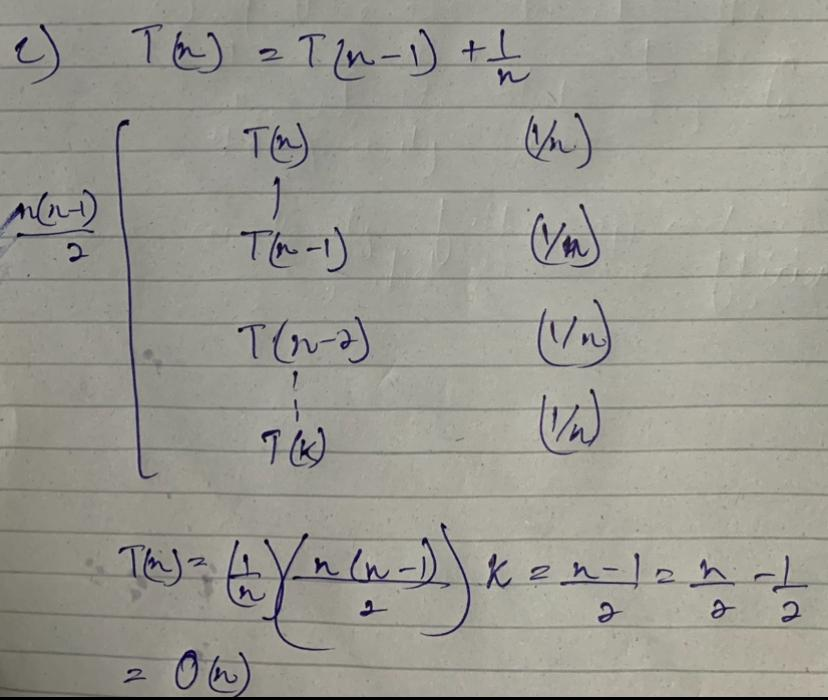 c) T(n) = T(n-1) + 1/n
T(n) (1/n)
n(n-1)/2
T(n-1) (1/n)
T(n-2) (1/n)
T(k) (1/n)
T(n) = (1/n)(n(n-1)/2) K = n-1/2 = n/2 - 1/2
= O(n)